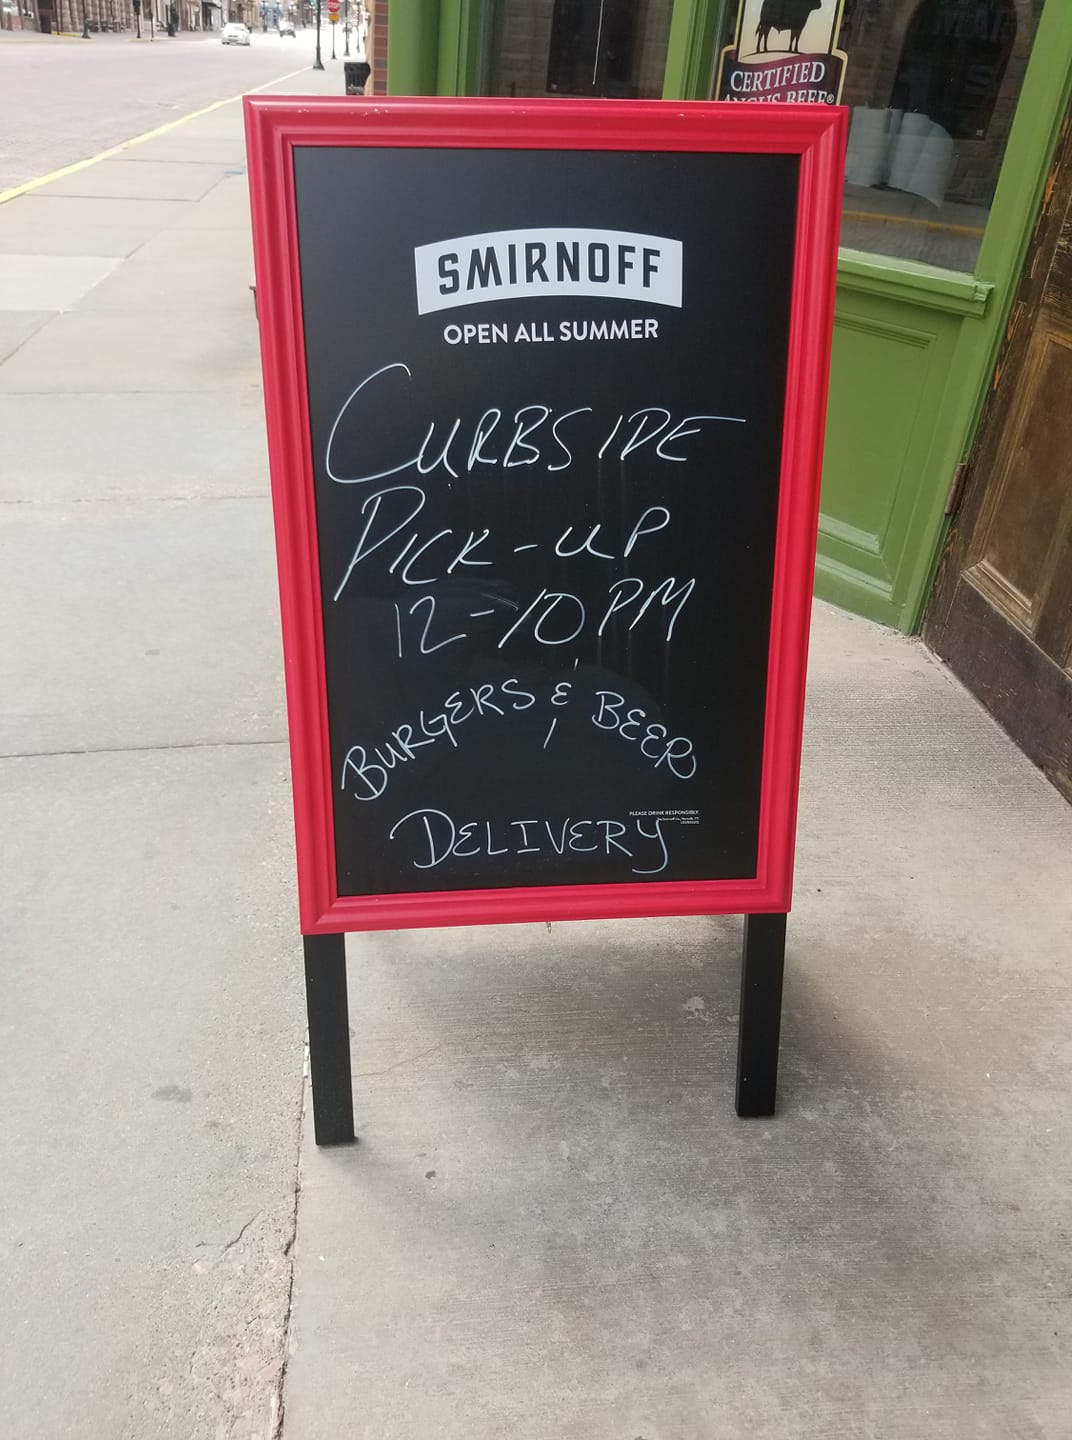 CERTIFIED
ANGUS BEEF®
SMIRNOFF
OPEN ALL SUMMER
CURBSIDE
PICK-UP
12-10PM
BURGERS & BEER
DELIVERY
PLEASE DRINK RESPONSIBLY.